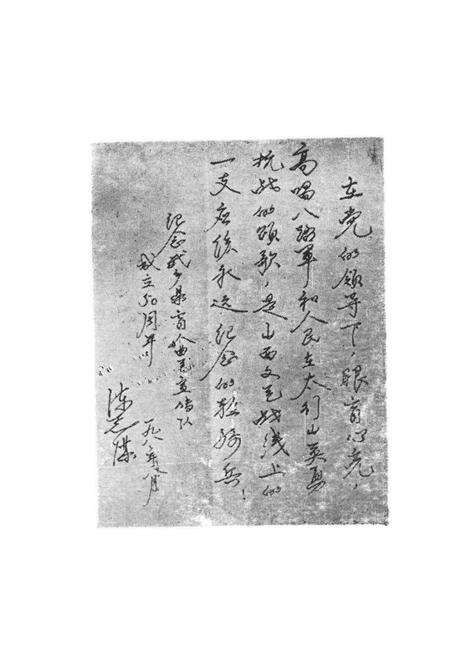 在党的领导下，眼盲心亮，
高唱八路军和人民在太行山英勇
抗战的颂歌，是山西文艺战线上的
一支应该永远纪念的轻骑兵！
纪念武乡县盲人曲艺宣传队
成立50周年
一九八八年八月
陈志